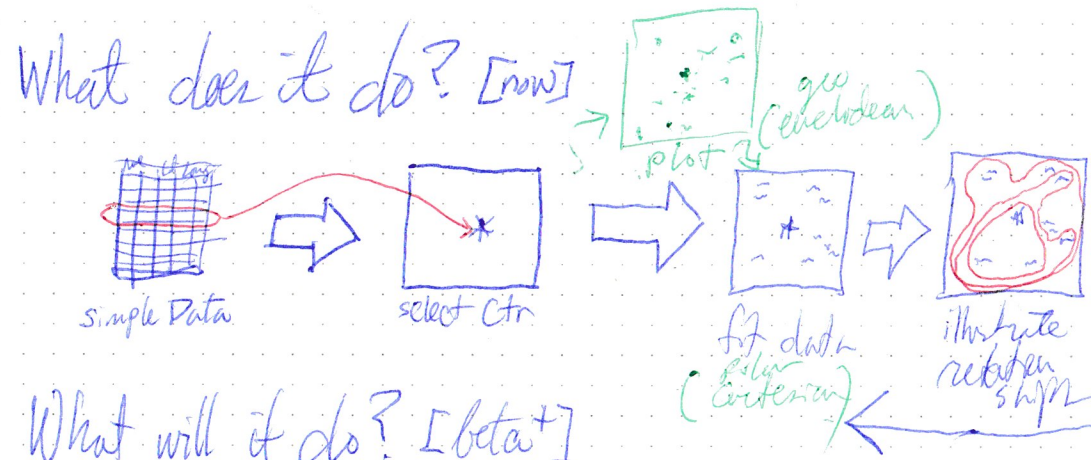 What does it do? [now]
geo
(euclidean)
plot
simple Data
select Ctr
fit data
(polar
cartesian)
illustrate
relation
ships
What will it do? [beta+]